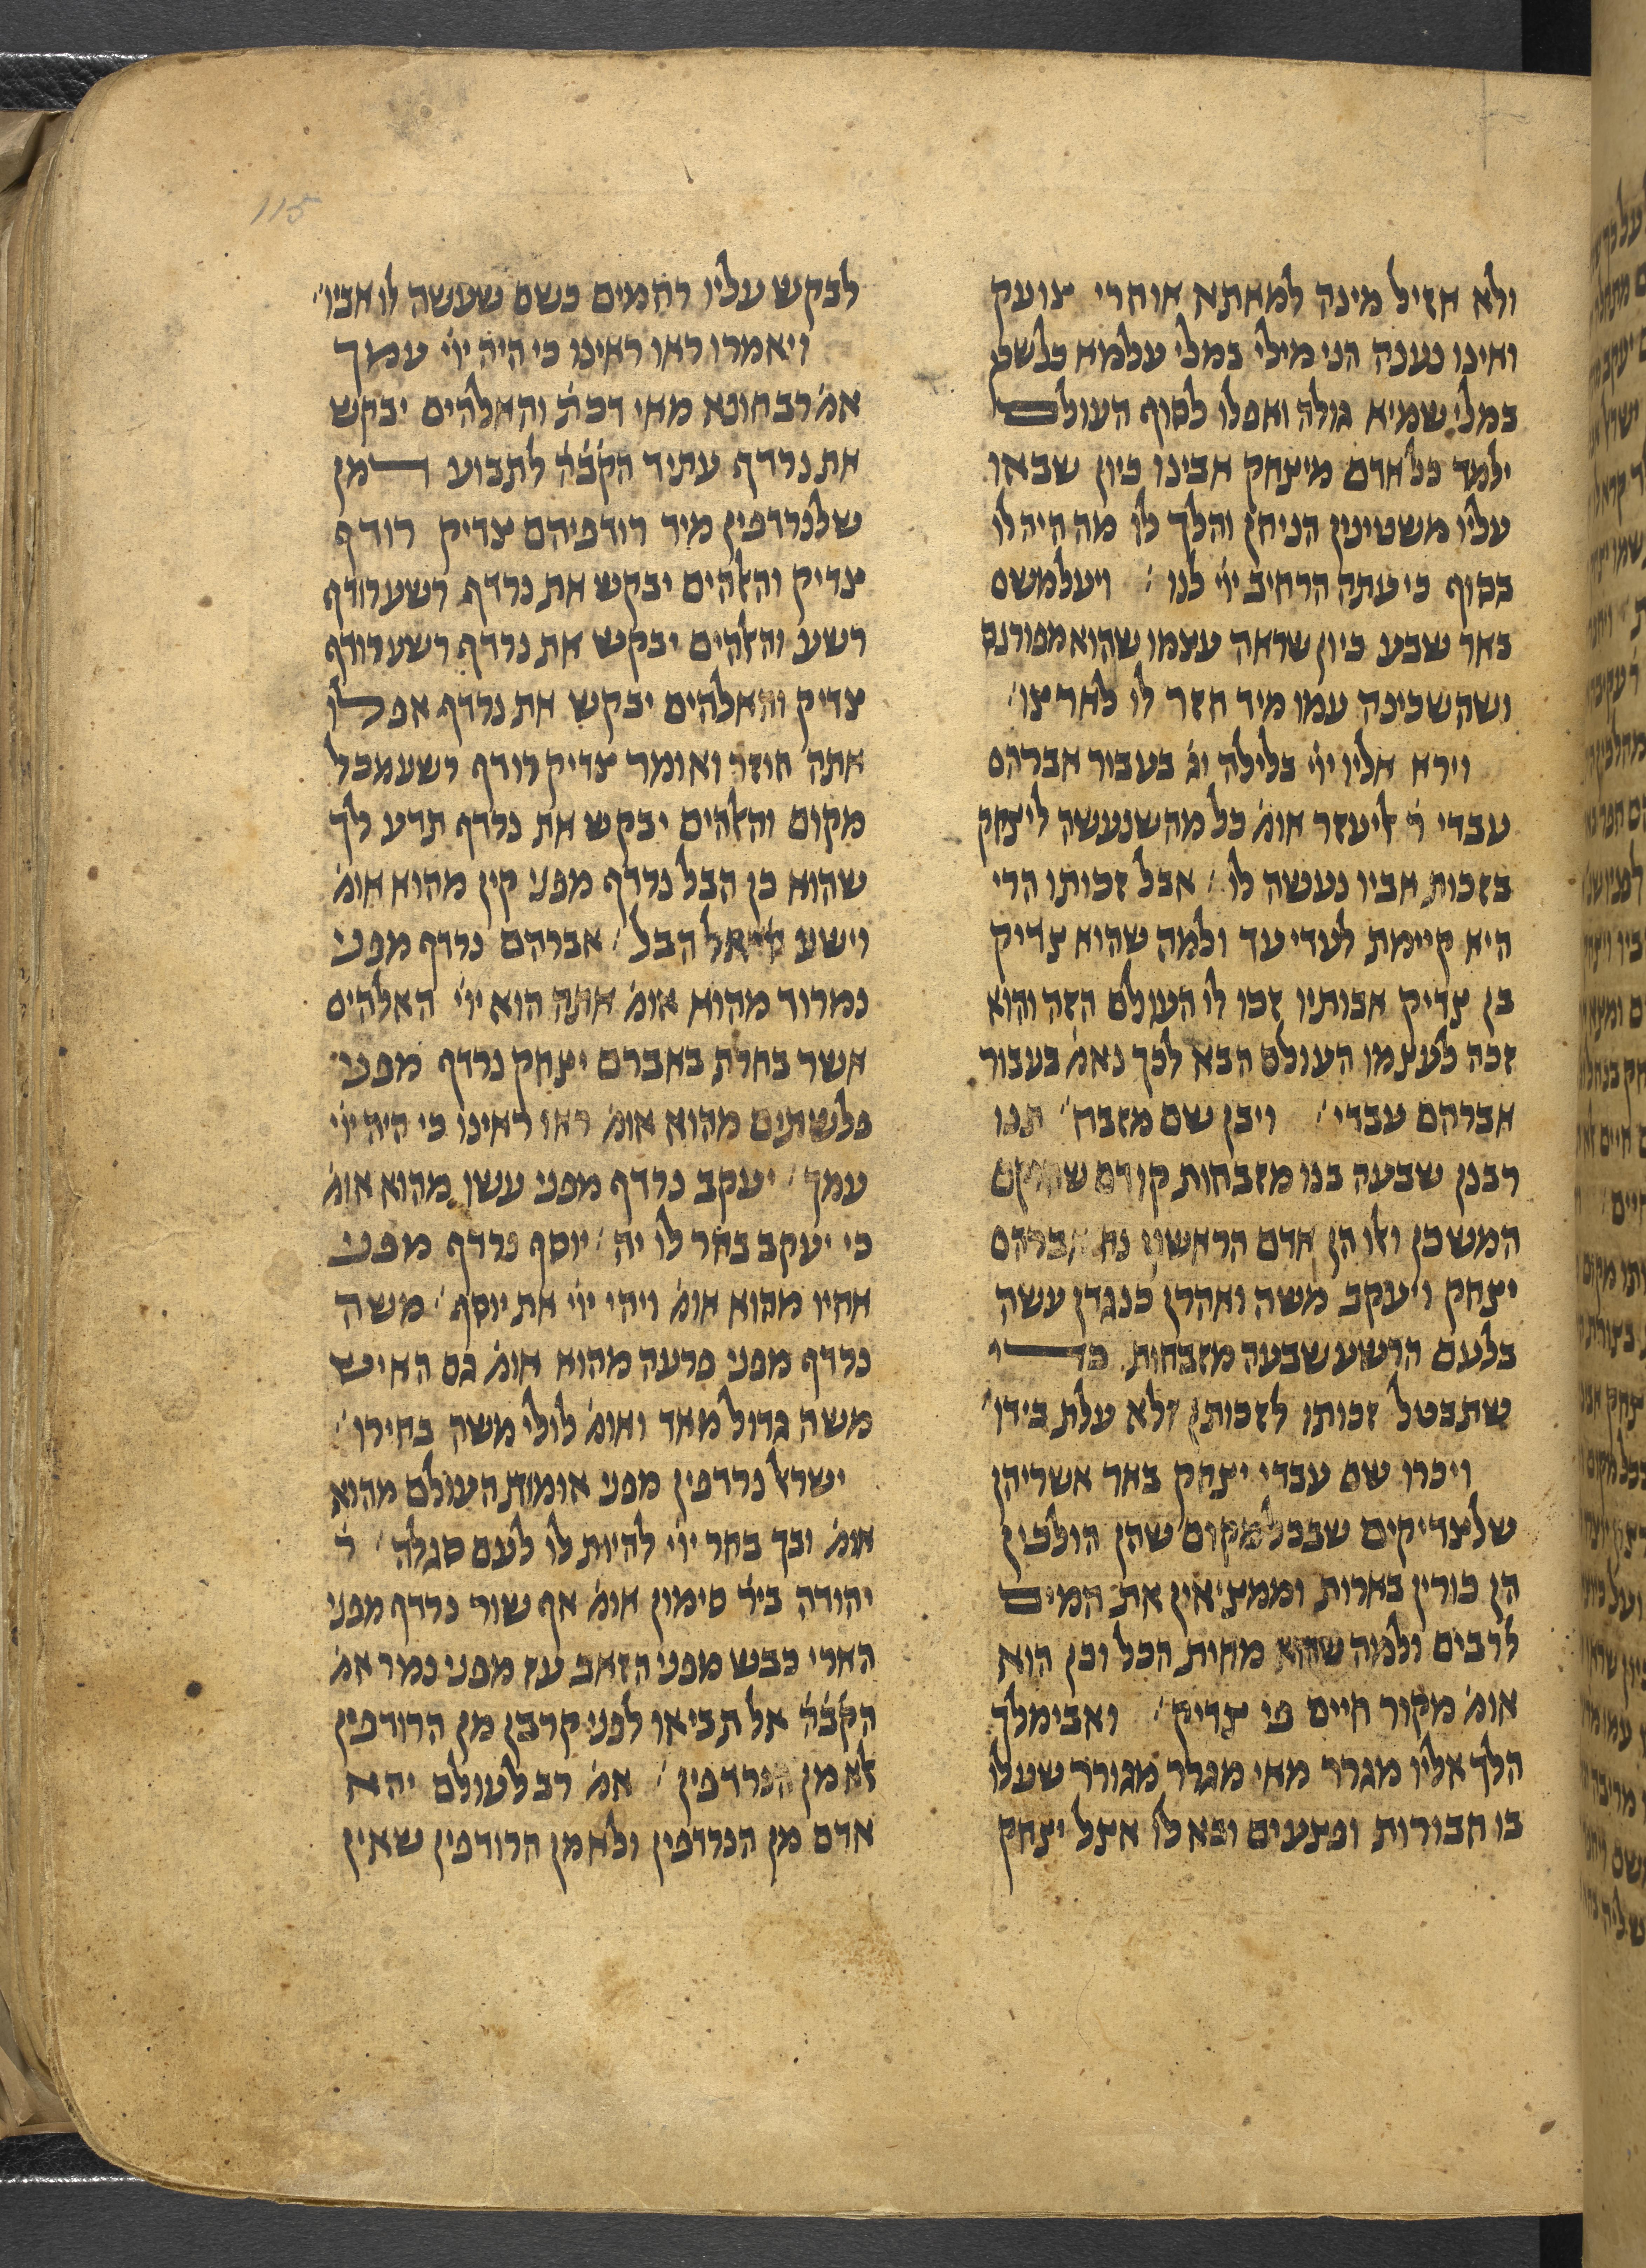 ולא אזיל מינה למאתא אוחרי צועק
ואינו נענה הני מילי במלי עלמא כלשט
במלי שמיא גולה ואפלו לסוף העולם
ילמד כל אדם מיצחק אבינו כיון שבאו
עליו משטינין הניחן והלך לו מה היה לו
בסוף כי עתה הרחיב ייי לנו ׃ ויעל משם
באר שבע כיון שראה עצמו שהוא מפורנס
ושהשכינה עמו מיד חזר לו לארצו׳
וירא אליו ייי בלילה וג׳ בעבור אברהם
עבדי ר׳ ליעזר אומ׳ כל מה שנעשה ליצחק
בזכות אביו נעשה לו ׃ אבל זכותו הרי
היא קיימת לעדי עד ולמה שהוא צדיק
בן צדיק אבותיו זכו לו העולם הזה והוא
זכה לעצמו העולם הבא לכך נאמ׳ בעבור
אברהם עבדי ׃ ויבן שם מזבח׳ תנו
רבנן שבעה בנו מזבחות קודם
המשכן ואלו הן אדם הראשון נח אברהם
יצחק ויעקב משה ואהרן כנגדן עשה
בלעם הרשע שבעה מזבחות כדי
שתבטל זכותו לזכותן ולא עלת בידו׳
ויכרו שם עבדי יצחק באר אשריהן
שלצדיקים שבכל מקום שהן הולכין
הן כורין בארות וממציאין את המים
לרבים ולמה שהוא מחית הכל וכן הוא
אומ׳ מקור חיים פי צדיק׳ ואבימלך
הלך אליו מגרר מאי מגרר מגורר שעלו
בו חבורות ופצעים ובא לו אצל יצחק
לבקש עליו רחמים כשם שעשה לו אביו׳
ויאמרו ראו ראינו כי היה ייי עמך
אמ׳ רב הונא מאי דכת׳ והאלהים יבקש
את נרדף עתיד הקב׳ה לתבוע דמן
שלנרדפין מיד רודפיהם צדיק רודף
צדיק והאלהים יבקש את נרדף רשע רודף
רשע והאלהים יבקש את נרדף רשע רודף
צדיק והאלהים יבקש את נרדף אפלו
אתה חוזר ואומר צדיק רודף רשע מכל
מקום והאלהים יבקש את נרדף תדע לך
שהוא כן הבל נרדף מפני קין מהוא אומ׳
וישע ייי אל הבל ׃ אברהם נרדף מפני
נמרוד מהוא אומ׳ אתה הוא ייי האלהים
אשר בחרת באברם יצחק נרדף מפני
פלשתים מהוא אומ׳ ראו ראינו כי היה ייי
עמך ׃ יעקב נרדף מפני עשו מהוא אומ׳
כי יעקב בחר לו יה ׃ יוסף נרדף מפני
אחיו מהוא אומ׳ ויהי ייי את יוסף ׃ משה
נרדף מפני פרעה מהוא אומ׳ גם האיש
משה גדול מאד ואומ׳ לולי משה בחירו ׃
ישראל נרדפין מפני אומות העולם מהוא
אומ׳ ובך בחר ייי להיות לו לעם סגלה ׃ ר׳
יהודה ביר׳ סימון אומ׳ אף שור נרדף מפני
הארי כבש מפני הזאב עז מפני נמר אמ׳
הקב׳ה אל תביאו לפני קרבן מן הרודפין
אלא מן הנרדפין ׃ אמ׳ רב לעולם יהא
אדם מן הנרדפין ולא מן הרודפין שאין
115